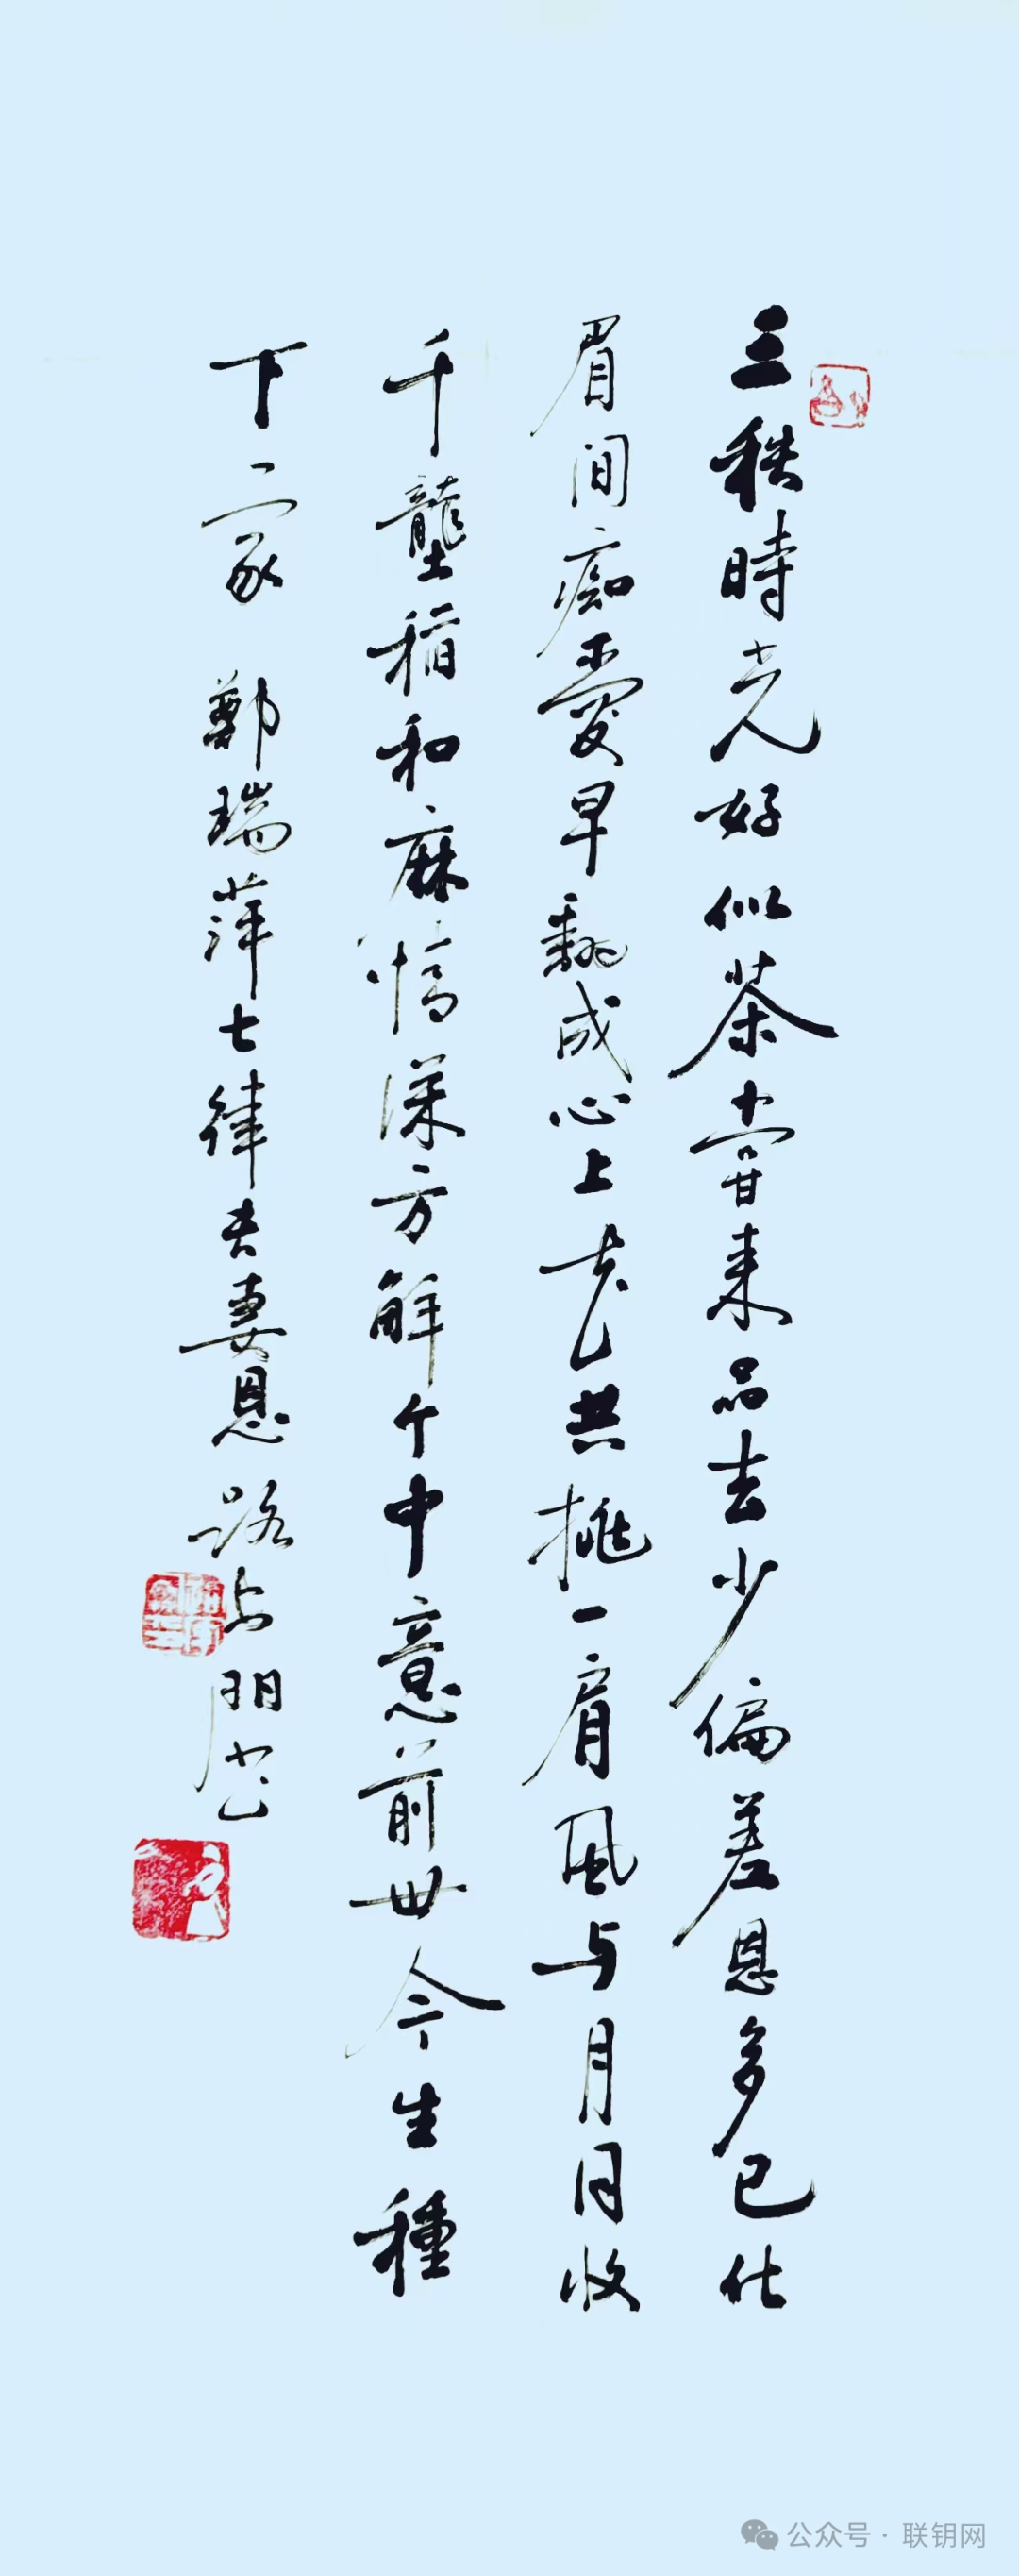 三秩時光好似茶嘗來品去少偏差恩多已化
眉間痴愛早翻成心上花共挑一肩風与月同收
千壟稻和麻情深方解个中意前世今生種
下家 鄭瑞萍七律夫妻恩 路占明書
公众号·联钥网